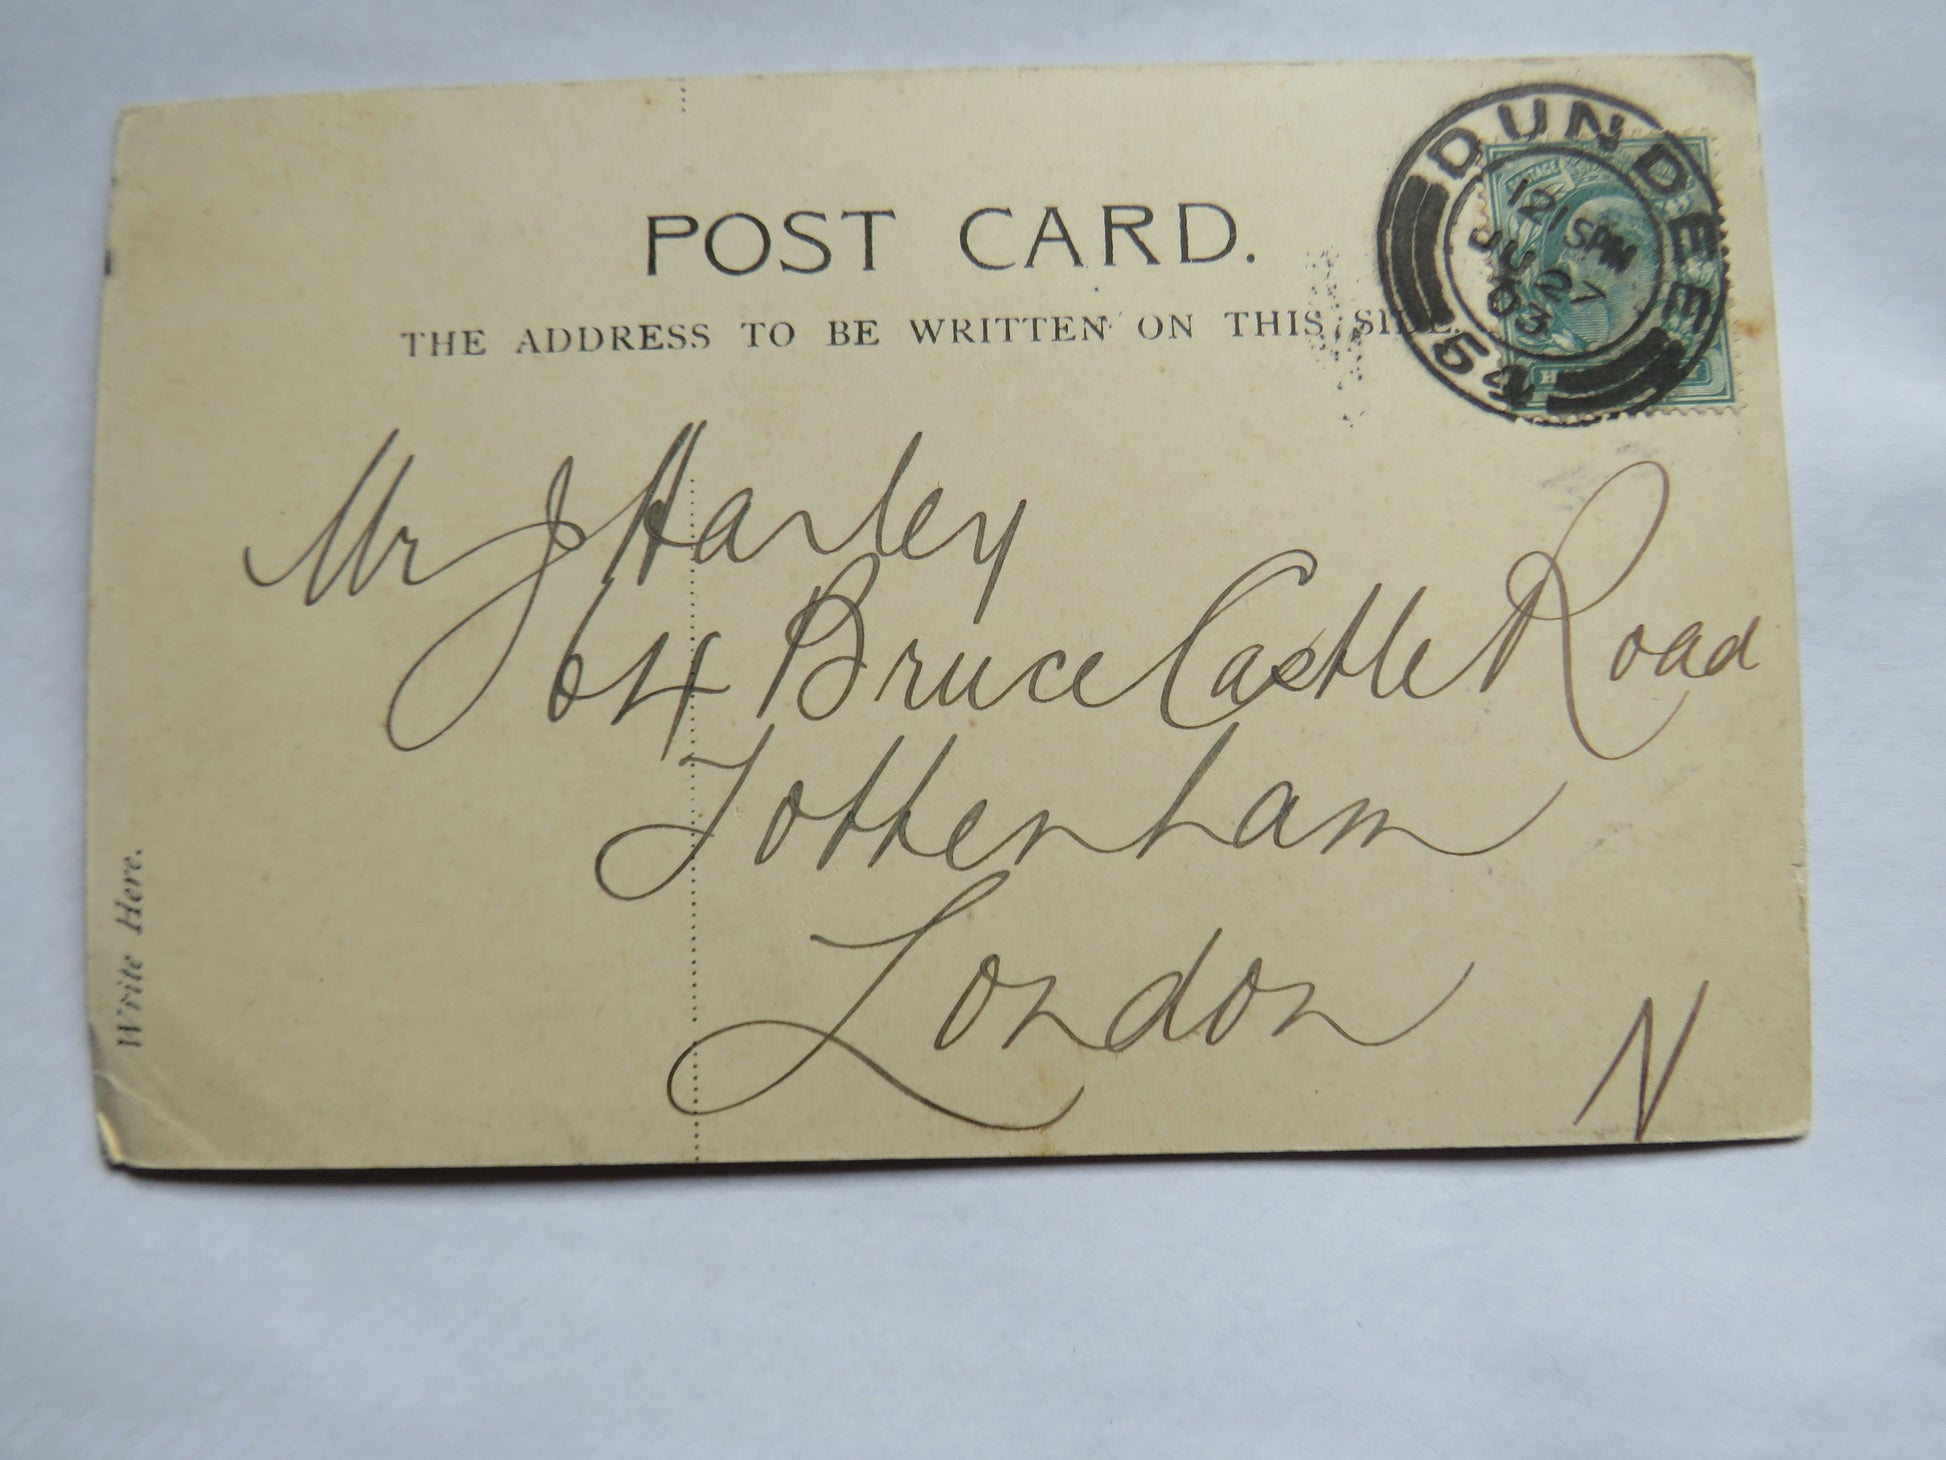 POST CARD.
THE ADDRESS TO BE WRITTEN ON THIS SIDE.
DUNDEE
12.15PM
JU 27
03
Mr J Harley
64 Bruce Castle Road
Tottenham
London
N
Write Here.